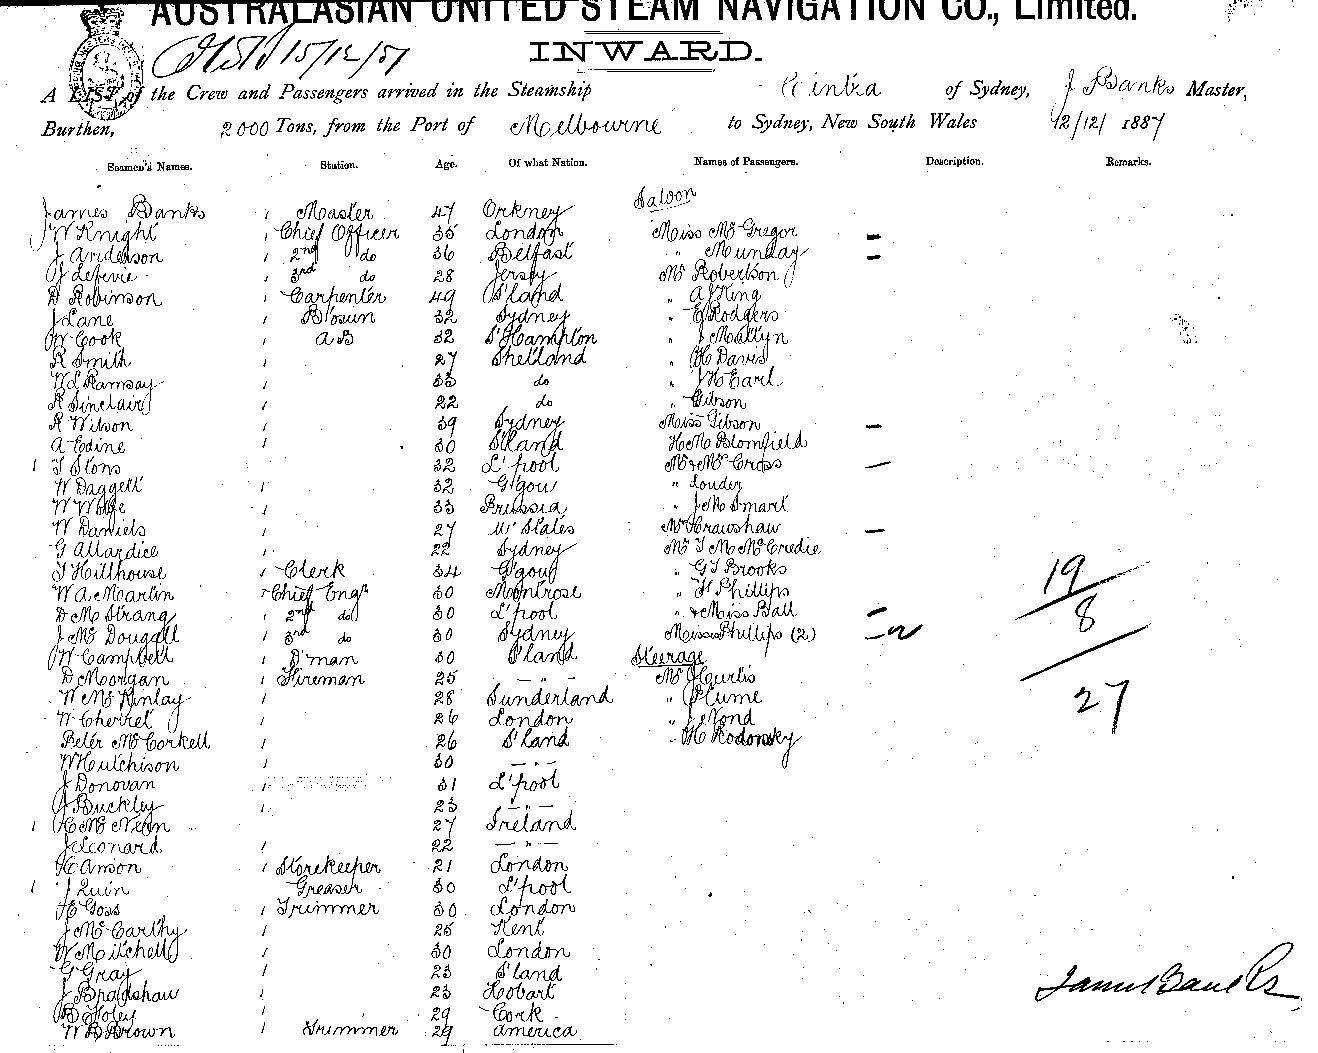 AUSTRALASIAN UNITED STEAM NAVIGATION CO., Limited.
15/12/87
INWARD.
A LIST of the Crew and Passengers arrived in the Steamship Cintra of Sydney, J Banks Master,
Burthen, 2000 Tons, from the Port of Melbourne to Sydney, New South Wales 12/12/ 1887
Seamen's Names. Station. Age. Of what Nation. Names of Passengers. Description. Remarks.
Saloon
James Banks 1 Master 47 Orkney
W Knight 1 Chief Officer 35 London Miss McGregor –
J Anderson 1 2nd do 36 Belfast " Munday –
J Lefevie 1 3rd do 28 Jersey Mr Robertson
D Robinson 1 Carpenter 49 S'land " A J King
J Lane 1 B'osun 32 Sydney " E Rodgers
W Cook 1 AB 32 S'Hampton " J Mallyn
R Smith 1 27 Shetland " H Davis
W L Ramsay 1 33 do " J H Earl
R Sinclair 1 22 do " Gibson
R Wilson 1 39 Sydney Miss Gibson –
A Edine 1 30 S'land H M Blomfield
1 T Stons 32 L'pool Mr & Mrs Cross –
W Daggett 1 32 G'gow " Louder
W Wolfe 1 33 Prussia " J M Smart
W Daniels 1 27 U' States Mrs Crawshaw –
G Allardice 1 22 Sydney Mr T M McCredie
T Hillhouse 1 Clerk 34 G'gow " G S Brooks
W A Martin 1 Chief Engr 30 Montrose " F Phillips
D M Strang 1 2nd do 30 L'pool " & Miss Ball –
J McDougall 1 3rd do 30 Sydney Misses Phillips (2) –
W Campbell 1 D'man 30 S'land Steerage
D Morgan 1 Fireman 25 – " – Mr J Curtis
W McKinlay 1 28 Sunderland " Plume
W Cherret 1 26 London " J Nond
Peter McCorkell 1 26 S'land " H Rodonsky
W Hutchison 1 30 – " –
J Donovan 1 31 L'pool
J Buckley 1 23 – " –
1 H McNeon 27 Ireland
J Leonard 1 22 – " –
H Anson 1 Storekeeper 21 London
1 J Quin Greaser 30 L'pool
H E Goss 1 Trimmer 30 London
J McCarthy 1 25 Kent
W Mitchell 1 30 London
G Gray 1 23 S'land
J Bradshaw 1 23 Hobart
B Foley 1 29 Cork
W B Brown 1 Trimmer 29 America
19
8
27
James Banks